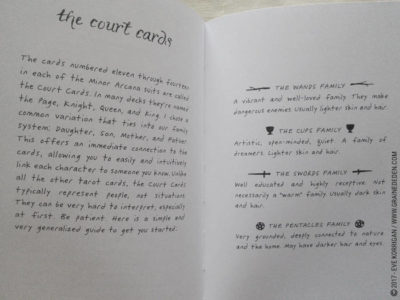 the court cards
The cards numbered eleven through fourteen
in each of the Minor Arcana suits are called
the Court Cards. In many decks they're named
the Page, Knight, Queen, and King. I chose a
common variation that ties into our family
system: Daughter, Son, Mother, and Father.
This offers an immediate connection to the
cards, allowing you to easily and intuitively
link each character to someone you know. Unlike
all the other tarot cards, the Court Cards
typically represent people, not situations.
They can be very hard to interpret, especially
at first. Be patient. Here is a simple and
very generalized guide to get you started:
THE WANDS FAMILY
A vibrant and well-loved family. They make
dangerous enemies. Usually lighter skin and hair.
THE CUPS FAMILY
Artistic, open-minded, quiet. A family of
dreamers. Lighter skin and hair.
THE SWORDS FAMILY
Well educated and highly receptive. Not
necessarily a "warm" family. Usually dark skin
and hair.
THE PENTACLES FAMILY
Very grounded, deeply connected to nature
and the home. May have darker hair and eyes.
© 2017 · EVE KORRIGAN / WWW.GRAINEDEDEN.COM